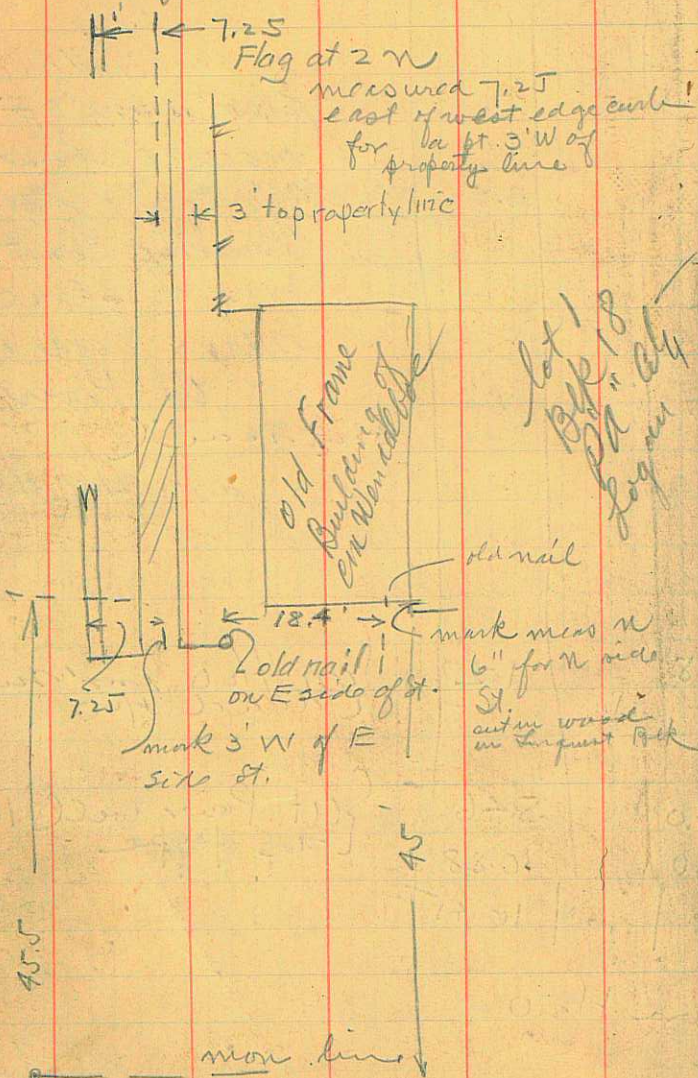 7.25
Flag at 2 N
measured 7.25
east of west edge curb
for a pt. 3' W of
property line
3' to property line
lot 1
Blk 18
Old Frame
Building
old nail
18.4'
mark meas N
6" for N side
St.
cut in wood
in Blk
old nail
on E side of St.
7.25
mark 3' W of E
side St.
45
45.5
mon. line